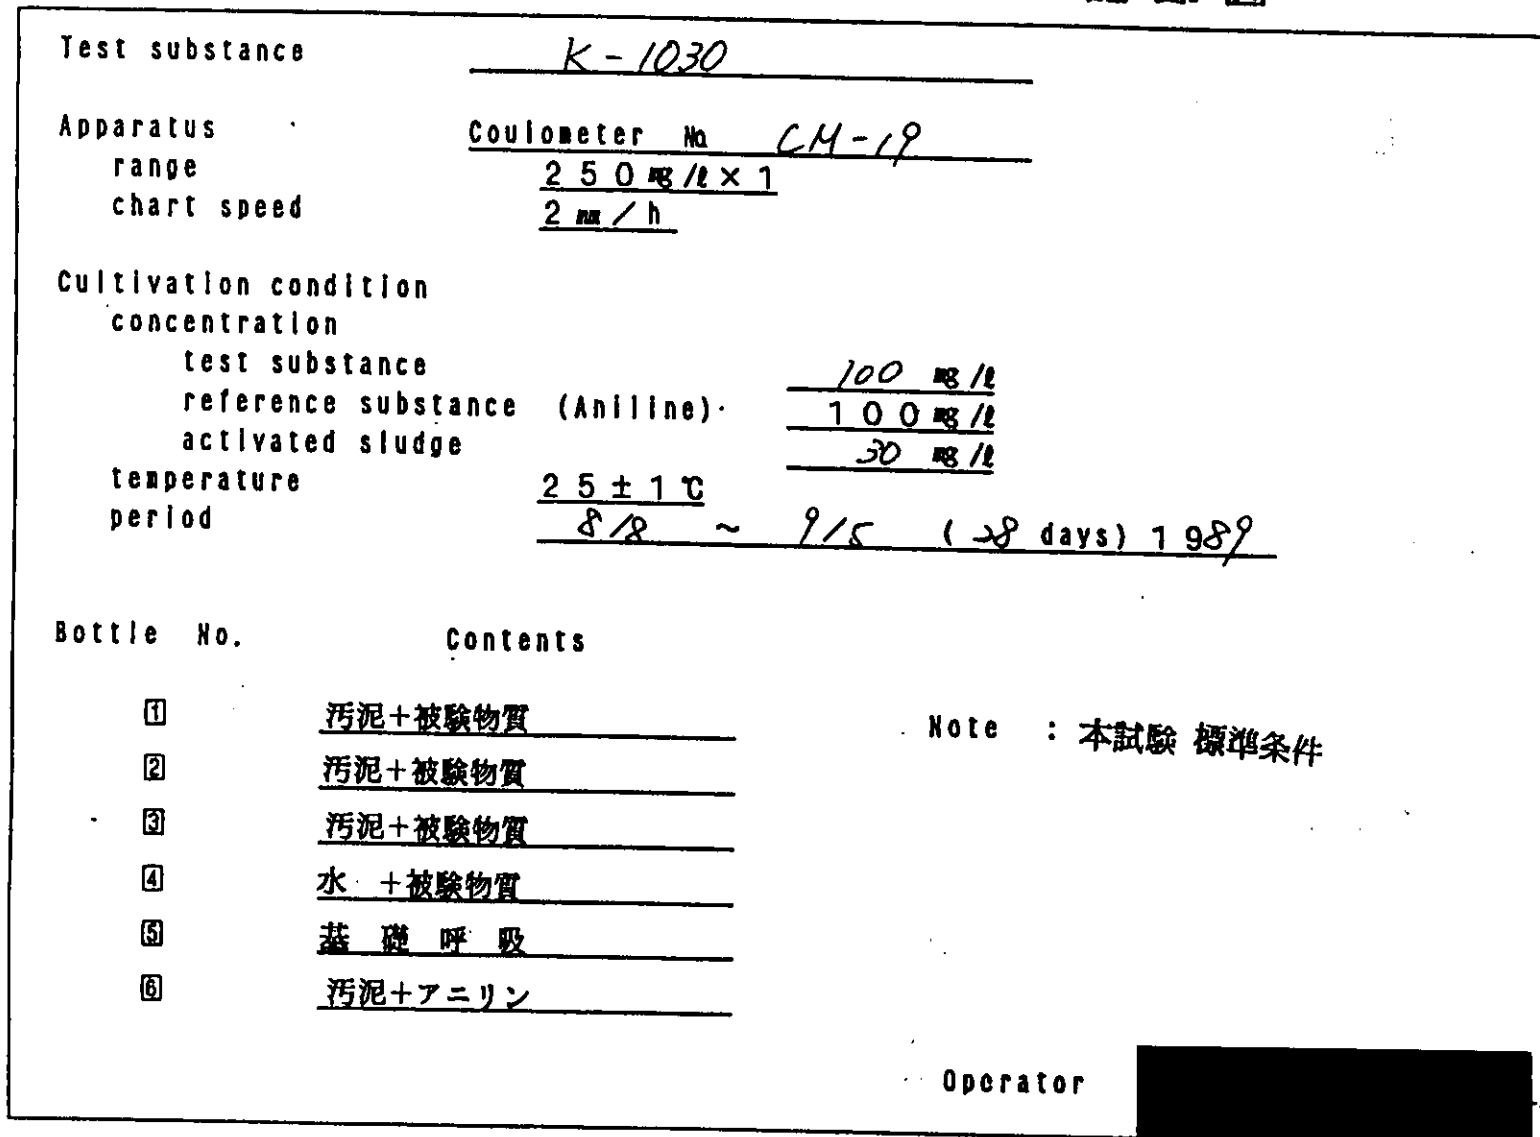 Test substance K-1030
Apparatus Coulometer No. CM-19
range 250 mg/ℓ × 1
chart speed 2 mm / h
Cultivation condition
concentration
test substance 100 mg/ℓ
reference substance (Aniline) 100 mg/ℓ
activated sludge 30 mg/ℓ
temperature 25 ± 1 ℃
period 8/8 ~ 9/5 (28 days) 1989
Bottle No. Contents
1 汚泥+被験物質 Note : 本試験 標準条件
2 汚泥+被験物質
3 汚泥+被験物質
4 水 +被験物質
5 基 礎 呼 吸
6 汚泥+アニリン
Operator